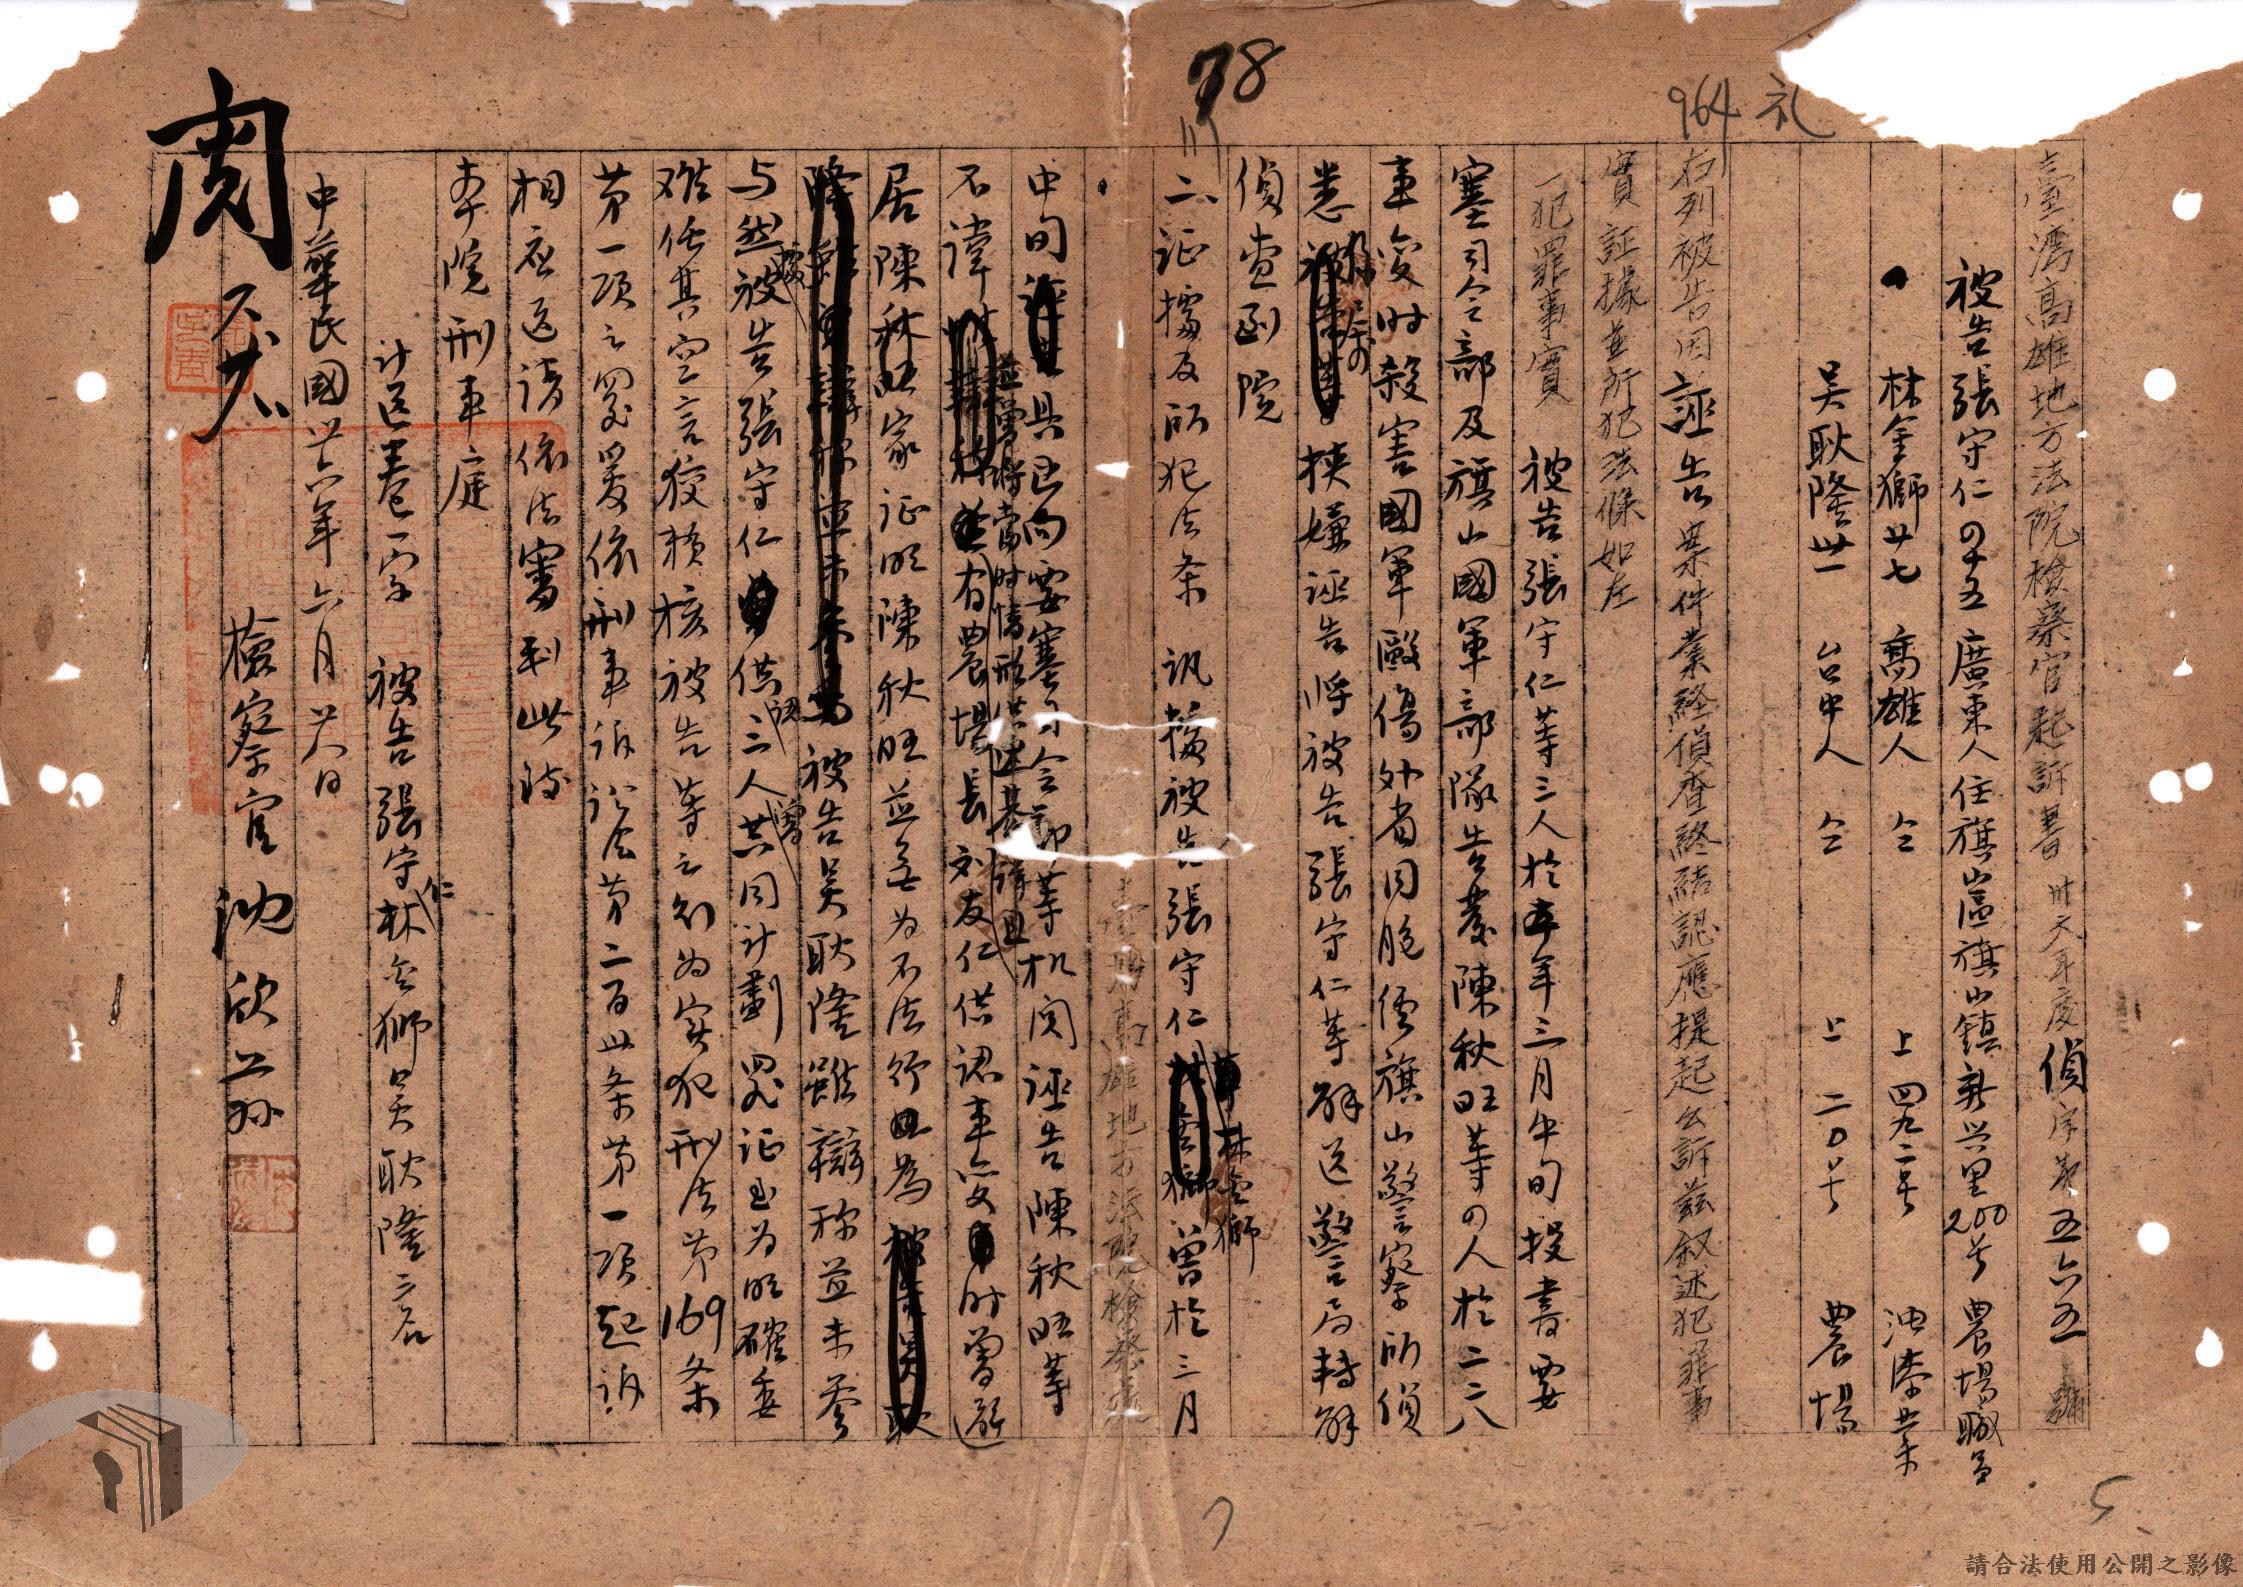 78
964 礼
臺灣高雄地方法院檢察官起訴書 卅六年度偵字第五六五號
被告張守仁四十五廣東人住旗山區旗山鎮新兴里200号 農場職員
林金獅廿七 高雄人 仝 上 四九二号 油漆业
吴耿隆卅一 台中人 仝 上 二〇号 農場
右列被告因誣告案件業経偵查終結認應提起公訴茲叙述犯罪事
實証據並所犯法條如左
一犯罪事實 被告張守仁等三人於本年三月中旬投書要
塞司令部及旗山國軍部隊告發陳秋旺等四人於二二八
事变时殺害國軍毆傷外省同胞經旗山警察所偵
悉 挾嫌誣告將被告張守仁等解送警局轉解
偵查到院
二、证據及所犯法条 訊據被告張守仁等林金獅曾於三月
中旬 具已向要塞司令部等机関誣告陳秋旺等
不諱 並曾將當时情形供述甚詳且有農場長刘友仁供認事变时曾避
居陳秋旺家证明陳秋旺並無为不法行為 耿
被告吴耿隆雖辯称並未参
与然據被告張守仁供認三人曾共同計劃 证 为明確委
难任其空言狡賴核被告等之所为实犯刑法第169条
第一項之罪爰依刑事诉讼法第二百卅条第一項起诉
相应送请依法審判此致
本院刑事庭
计送卷一宗 被告張守仁林金獅吴耿隆三名
中華民國卅六年六月 日
檢察官沈欣
閱
請合法使用公開之影像